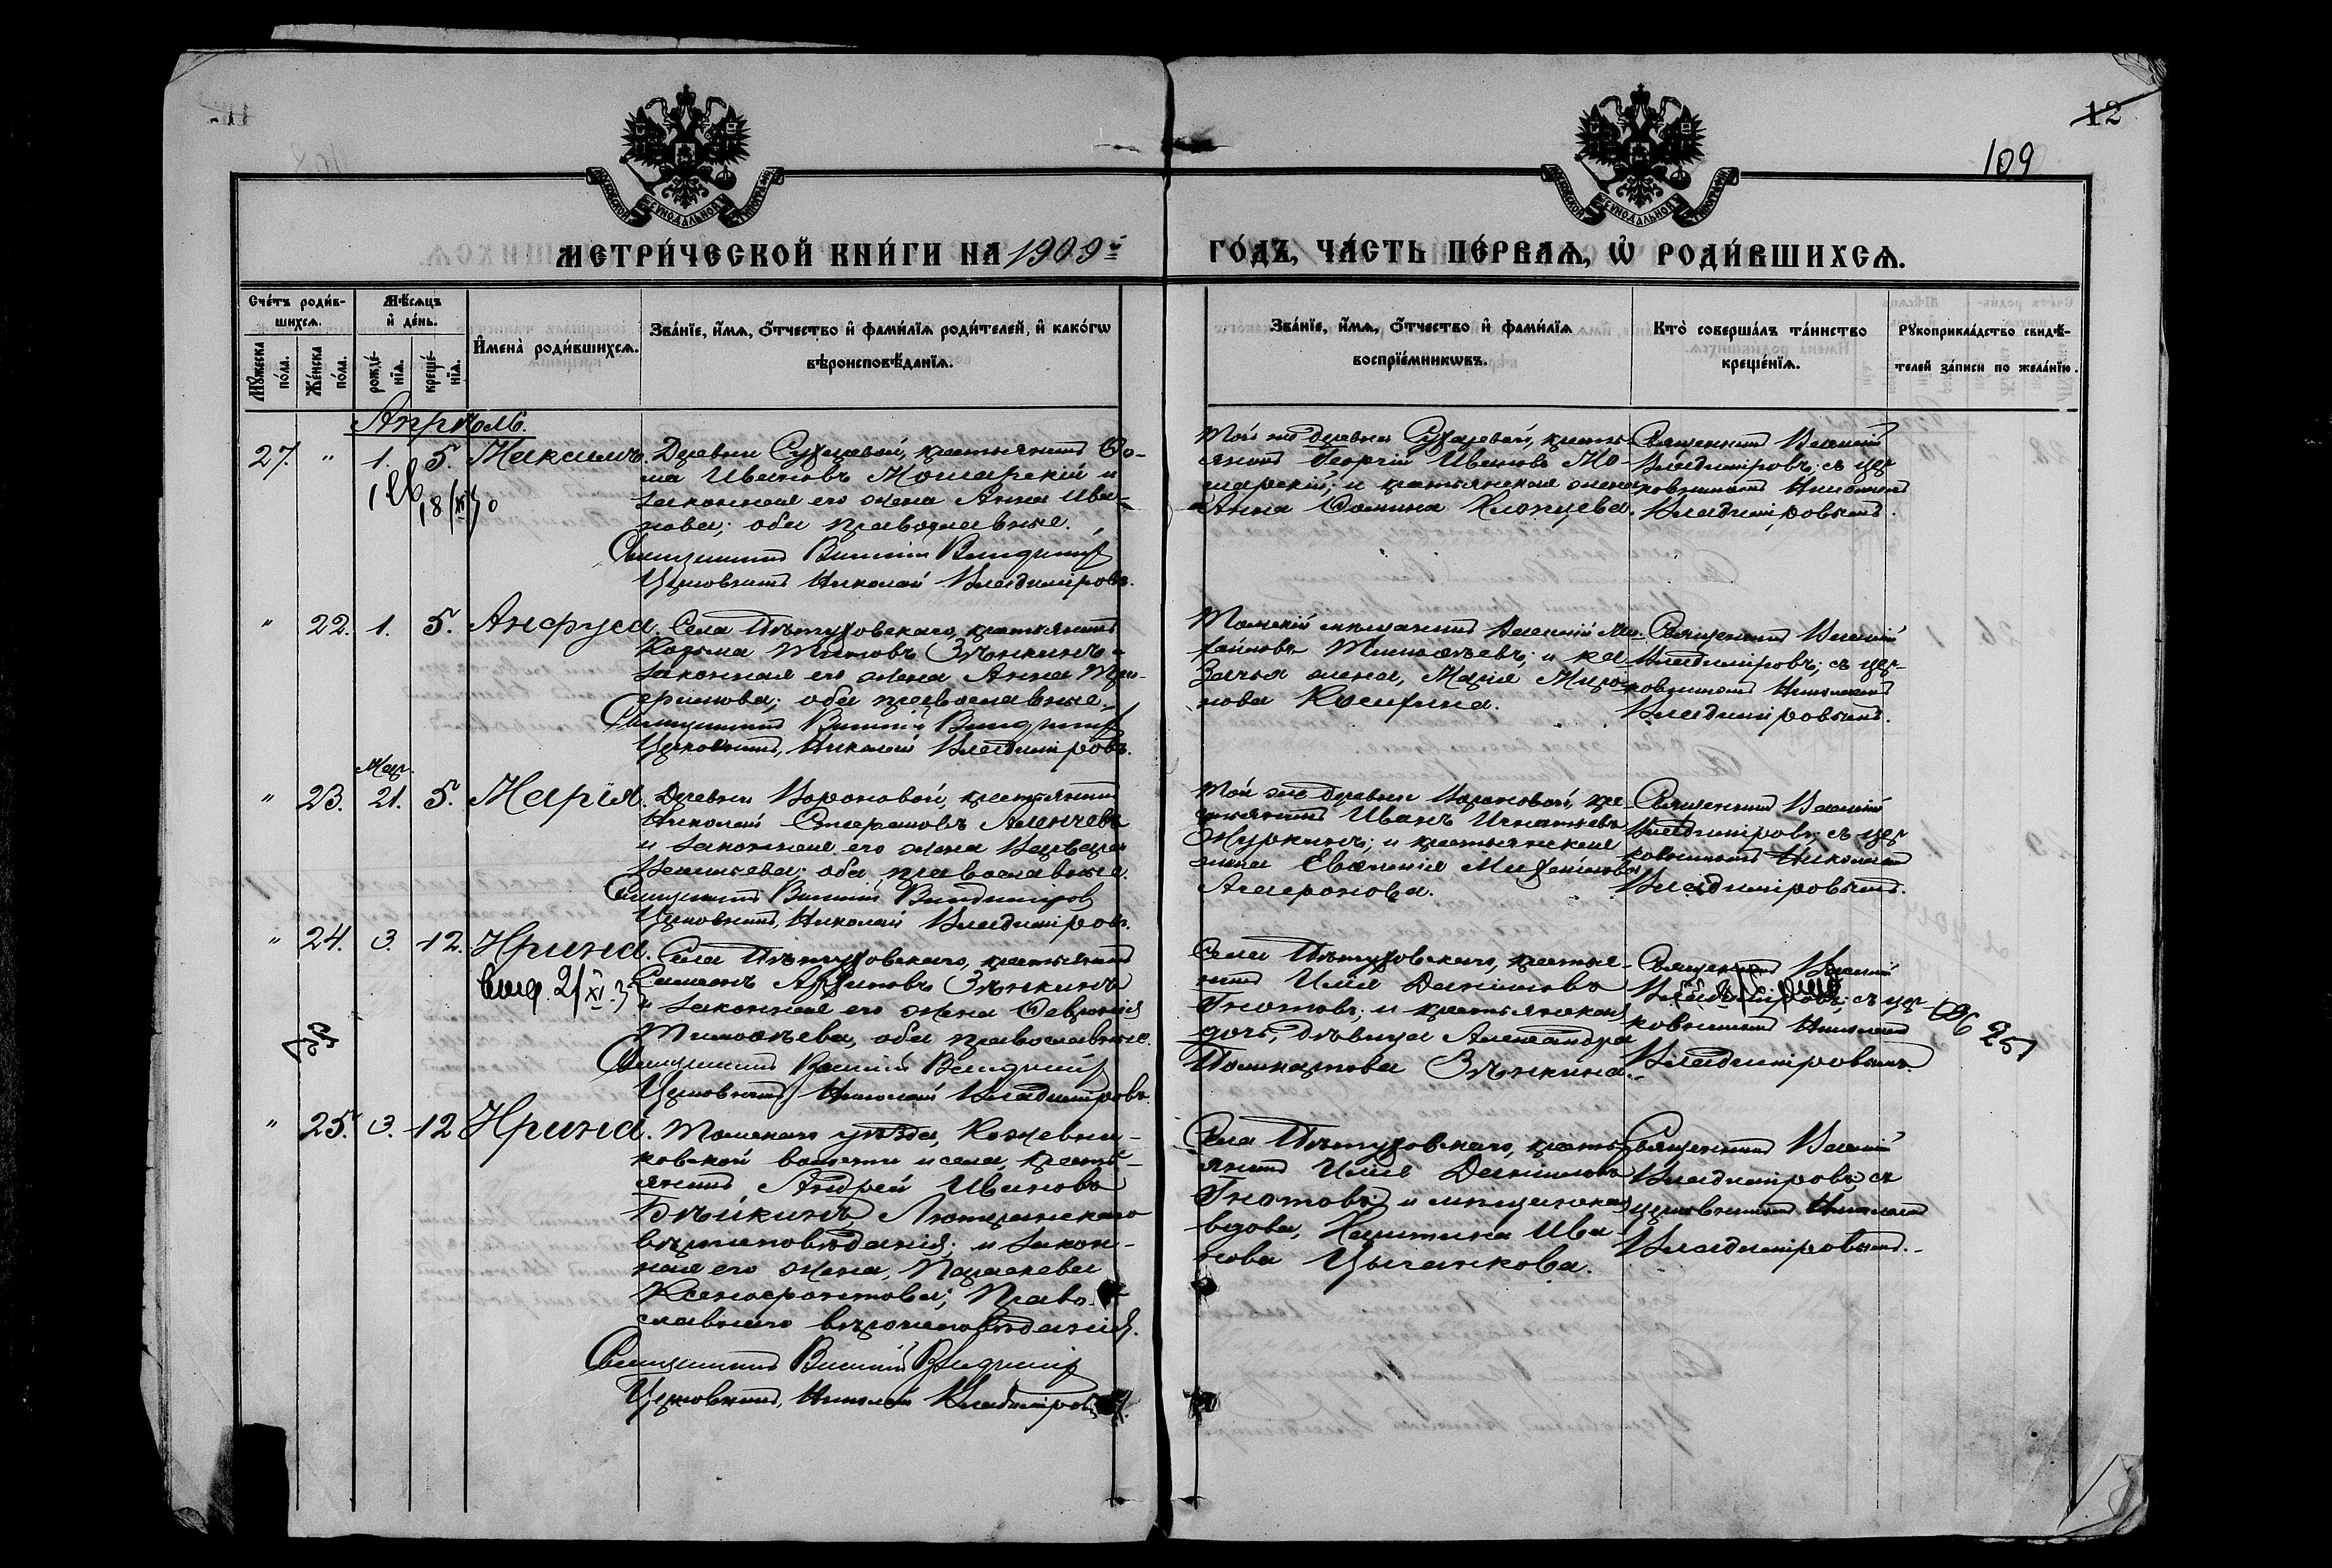 12
109
МЕТРИ́ЧЕСКОЙ КНИ́ГИ НА 1909й
ГО́ДЪ, ЧА́СТЬ ПЕ́РВАѦ, Ѡ҆ РОДИ́ВШИХСѦ.
Сче́тъ роди́в-
шихсѧ.
Мѣ́сѧцъ
и҆ де́нь.
И҆мена̀ роди́вшихсѧ.
Зва́нїе, и҆́мѧ, о҆́тчество и҆ фами́лїѧ роди́телей, и҆ како́гѡ
вѣроисповѣ́данїѧ.
Мꙋ́жеска по́ла.
Же́нска по́ла.
рожде́-
нїѧ.
креще́-
нїѧ.
Зва́нїе, и҆́мѧ, о҆́тчество и҆ фами́лїѧ
воспрїе́мникѡвъ.
Кто̀ соверша́лъ та́инство
креще́нїѧ.
Рꙋкоприкла́дство свидѣ́-
телей за́писи по жела́нїю.
Апрѣль.
27. " 1. 5. Максимъ.
Деревни Сухаревой, крестьянинъ Ѳо-
ма Ивановъ Мошарскій и
законная его жена Анна Ива-
нова; оба православные.
Священникъ Василій Владиміровъ
Церковникъ Николай Владиміровъ.
Той же деревни Сухаревой, кресть-
янинъ Георгій Ивановъ Мо-
шарскій; и крестьянская жена
Анна Ѳомина Клопцева.
Священникъ Василій
Владиміровъ; съ цер-
ковникомъ Николаемъ
Владиміровымъ.
18/XI 30
" 22. 1. 5. Анфуса.
Села Пѣтуховскаго, крестьянинъ
Козьма Титовъ Зѣнкинъ и
законная его жена Анна Три-
фонова; оба православные.
Священникъ Василій Владиміровъ
Церковникъ, Николай Владиміровъ.
Томскій мѣщанинъ Василій Ми-
хайловъ Тимоѳѣевъ; и ка-
зачья жена, Марія Миро-
нова Косифина.
Священникъ Василій
Владиміровъ; съ цер-
ковникомъ Николаемъ
Владиміровымъ.
Мар.
" 23. 21. 5. Марія.
Деревни Вороновой, крестьянинъ
Николай Астафьевъ
и законная его жена Варвара
Васильева; оба православные.
Священникъ Василій Владиміровъ
Церковникъ, Николай Владиміровъ.
Той же деревни Вороновой, кре-
стьянинъ Иванъ Игнатьевъ
Журкинъ; и крестьянская
жена Евгенія Михайлова
Агафонова.
Священникъ Василій
Владиміровъ; съ цер-
ковникомъ Николаемъ
Владиміровымъ.
" 24. 3. 12. Ирина.
Села Пѣтуховскаго, крестьянинъ
Симеонъ Архиповъ Зѣнкинъ
и законная его жена Февронія
Тимоѳѣева, оба православные.
Священникъ Василій Владиміровъ
Церковникъ, Николай Владиміровъ.
Села Пѣтуховскаго, крестья-
нинъ Илія Даниловъ
Гнотовъ; и крестьянская
дочь, дѣвица Александра
Поликарпова Зѣнкина.
Священникъ Василій
Владиміровъ; съ цер-
ковникомъ Николаемъ
Владиміровымъ.
" 25. 3. 12 Ирина.
Томскаго уѣзда, Кожевни-
ковской волости и села, кресть-
янинъ Андрей Ивановъ
Бѣйкинъ, Лютеранскаго
вѣроисповѣданія; и закон-
ная его жена, Параскева
Ксенофонтова; Право-
славнаго вѣроисповѣданія.
Священникъ Василій Владиміровъ
Церковникъ, Николай Владиміровъ.
Села Пѣтуховскаго, кресть-
янинъ Илія Даниловъ
Гнотовъ; и мѣщанская
вдова, Капитина Ива-
нова Цыганкова.
Священникъ Василій
Владиміровъ съ
церковникомъ Николаемъ
Владиміровымъ.